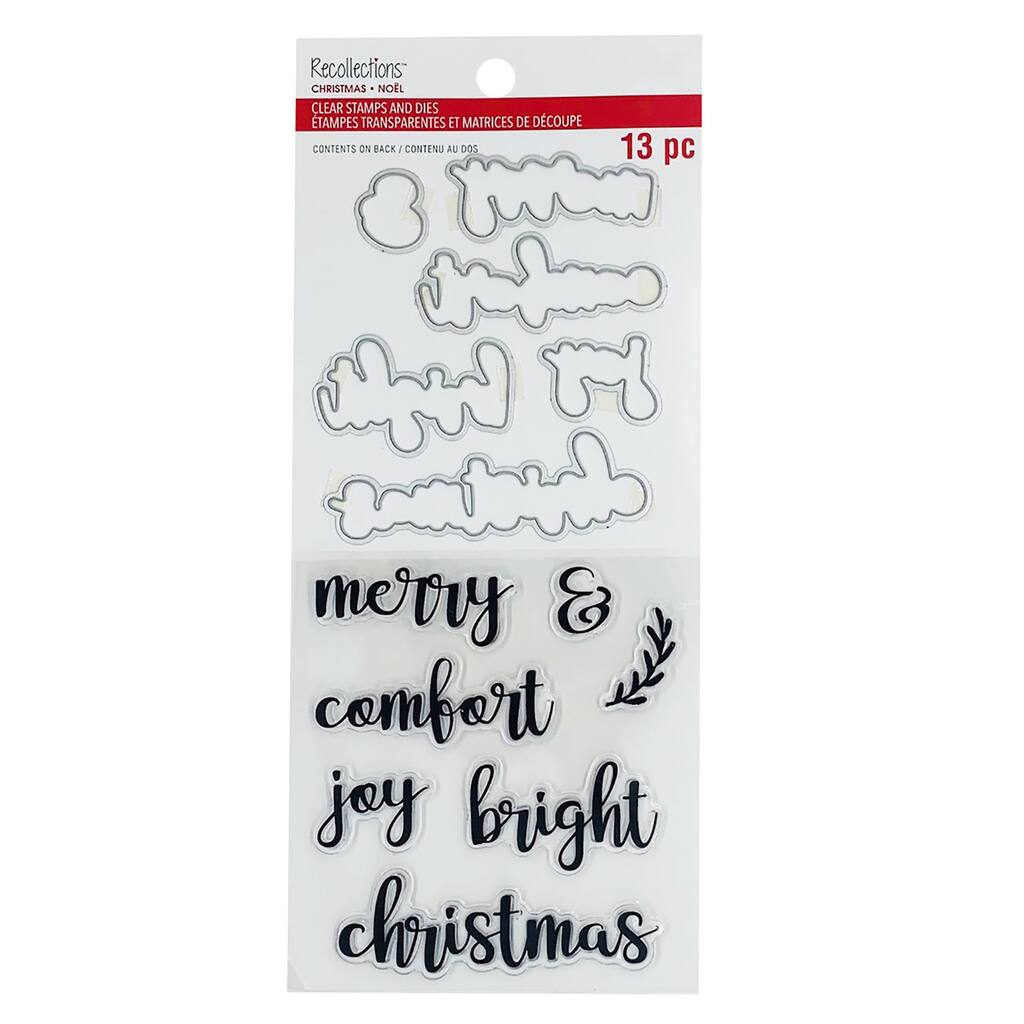 Recollections™
CHRISTMAS • NOËL
CLEAR STAMPS AND DIES
ÉTAMPES TRANSPARENTES ET MATRICES DE DÉCOUPE
CONTENTS ON BACK / CONTENU AU DOS
13 pc
merry &
comfort
joy bright
christmas